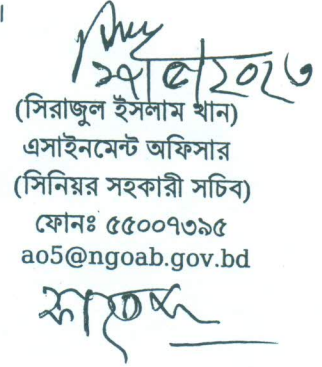 (সিরাজুল ইসলাম খান)
এসাইনমেন্ট অফিসার
(সিনিয়র সহকারী সচিব)
ফোনঃ ৫৫০০৭৩৯৫
ao5@ngoab.gov.bd